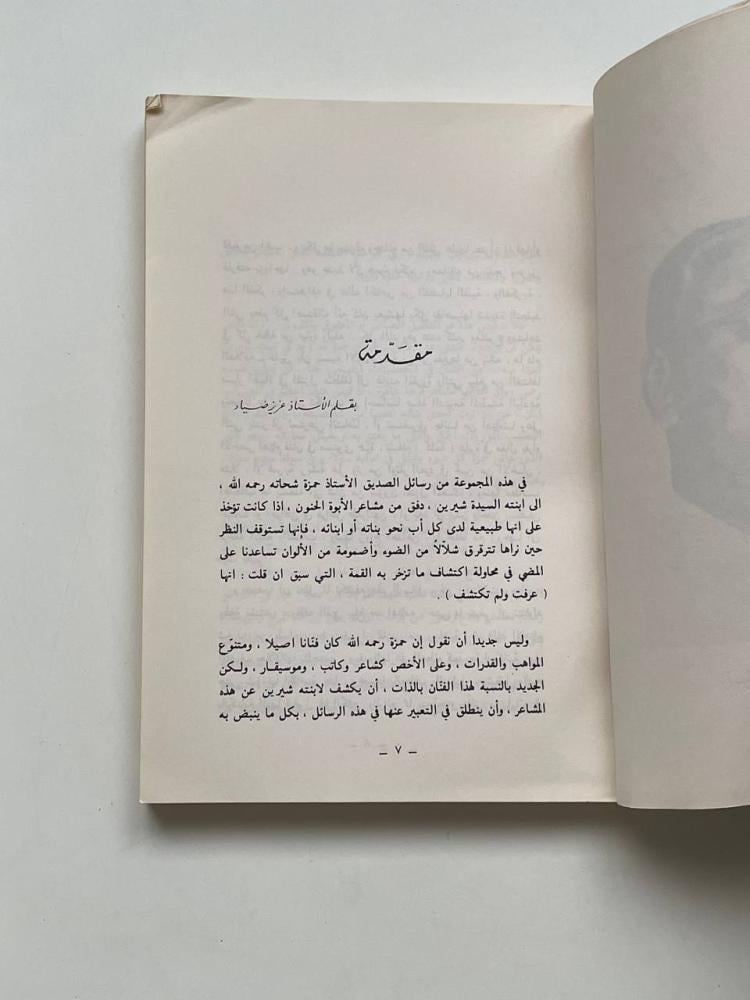 مقدّمة
بقلم الأستاذ عزيز ضياء
في هذه المجموعة من رسائل الصديق الأستاذ حمزة شحاته رحمه الله ،
الى ابنته السيدة شيرين ، دفق من مشاعر الأبوة الحنون ، اذا كانت تؤخذ
على انها طبيعية لدى كل أب نحو بناته أو ابنائه ، فإنها تستوقف النظر
حين نراها تترقرق شلاّلاً من الضوء وأضمومة من الألوان تساعدنا على
المضي في محاولة اكتشاف ما تزخر به القمة ، التي سبق ان قلت : انها
( عرفت ولم تكتشف ) .
وليس جديدا أن نقول إن حمزة رحمه الله كان فنّانا اصيلا ، ومتنوّع
المواهب والقدرات ، وعلى الأخص كشاعر وكاتب ، وموسيقار ، ولكن
الجديد بالنسبة لهذا الفنّان بالذات ، أن يكشف لابنته شيرين عن هذه
المشاعر ، وأن ينطلق في التعبير عنها في هذه الرسائل ، بكل ما ينبض به
– ٧ –